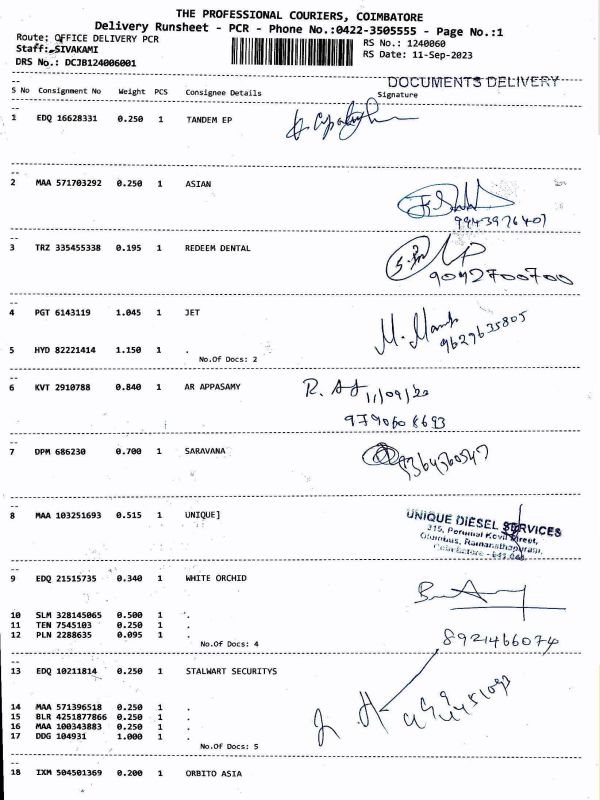 THE PROFESSIONAL COURIERS, COIMBATORE
Delivery Runsheet - PCR - Phone No.:0422-3505555 - Page No.:1
Route: OFFICE DELIVERY PCR RS No.: 1240060
Staff: SIVAKAMI RS Date: 11-Sep-2023
DRS No.: DCJB124006001
DOCUMENTS DELIVERY
S No Consignment No Weight PCS Consignee Details Signature
1 EDQ 16628331 0.250 1 TANDEM EP
2 MAA 571703292 0.250 1 ASIAN
9943976407
3 TRZ 335455338 0.195 1 REDEEM DENTAL
9092700700
4 PGT 6143119 1.045 1 JET
9629635805
5 HYD 82221414 1.150 1 .
No.Of Docs: 2
6 KVT 2910788 0.840 1 AR APPASAMY
9790608693
7 DPM 686230 0.700 1 SARAVANA
9364360547
8 MAA 103251693 0.515 1 UNIQUE]
UNIQUE DIESEL SERVICES
315, Perumal Kovil Street,
Olumbus, Ramanathapuram,
Coimbatore - 641 045.
9 EDQ 21515735 0.340 1 WHITE ORCHID
10 SLM 328145065 0.500 1 .
11 TEN 7545103 0.250 1 .
12 PLN 2288635 0.095 1 .
No.Of Docs: 4
8921466074
13 EDQ 10211814 0.250 1 STALWART SECURITYS
14 MAA 571396518 0.250 1 .
15 BLR 4251877866 0.250 1 .
16 MAA 100343883 0.250 1 .
17 DDG 104931 1.000 1 .
No.Of Docs: 5
18 IXM 504501369 0.200 1 ORBITO ASIA